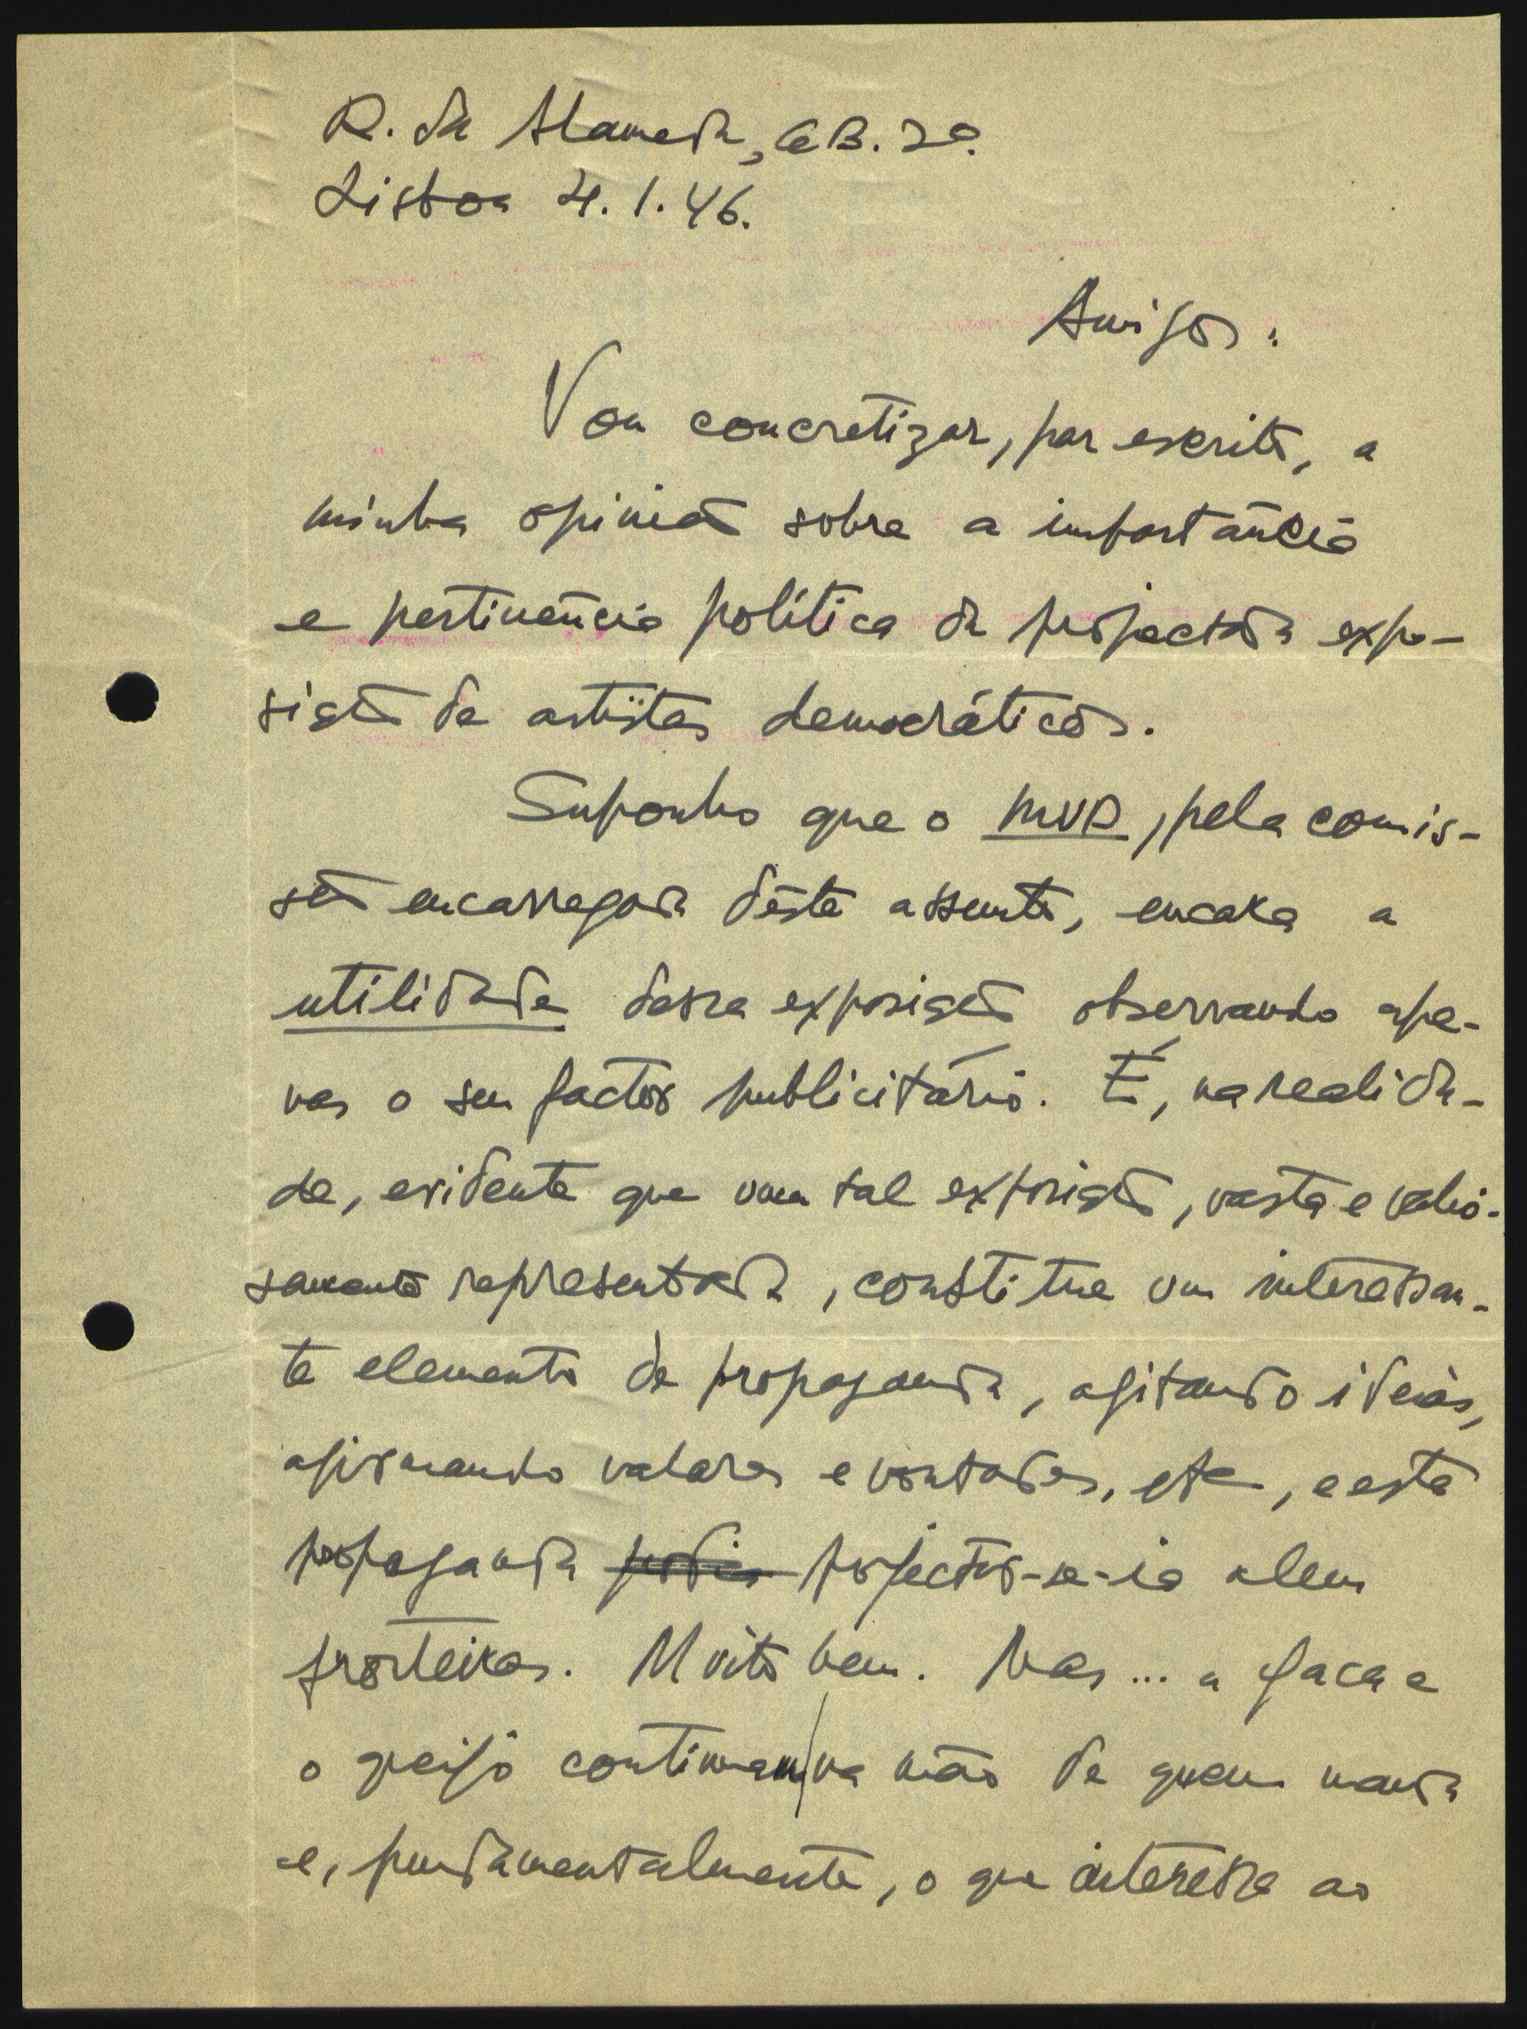 R. da Alameda, 6B. 2º.
Lisboa 4.1.46.
Amigos:
Vou concretizar, por escrito, a
minha opinião sobre a importância
e pertinência política da projectada expo-
sição de artistas democráticos.
Suponho que o MUD, pela comis-
são encarregada dêste assunto, encara a
utilidade dessa exposição observando ape-
nas o seu factor publicitário. É, na realida-
de, evidente que uma tal exposição, vasta e valio-
samente representada, constitue um interessan-
te elemento de propaganda, agitando ideias,
afirmando valores e vontades, etc, e esta
propaganda podia projectar-se-ia alem
fronteiras. Muito bem. Mas... a faca e
o queijo continuam na mão de quem manda
e, fundamentalmente, o que interessa ao